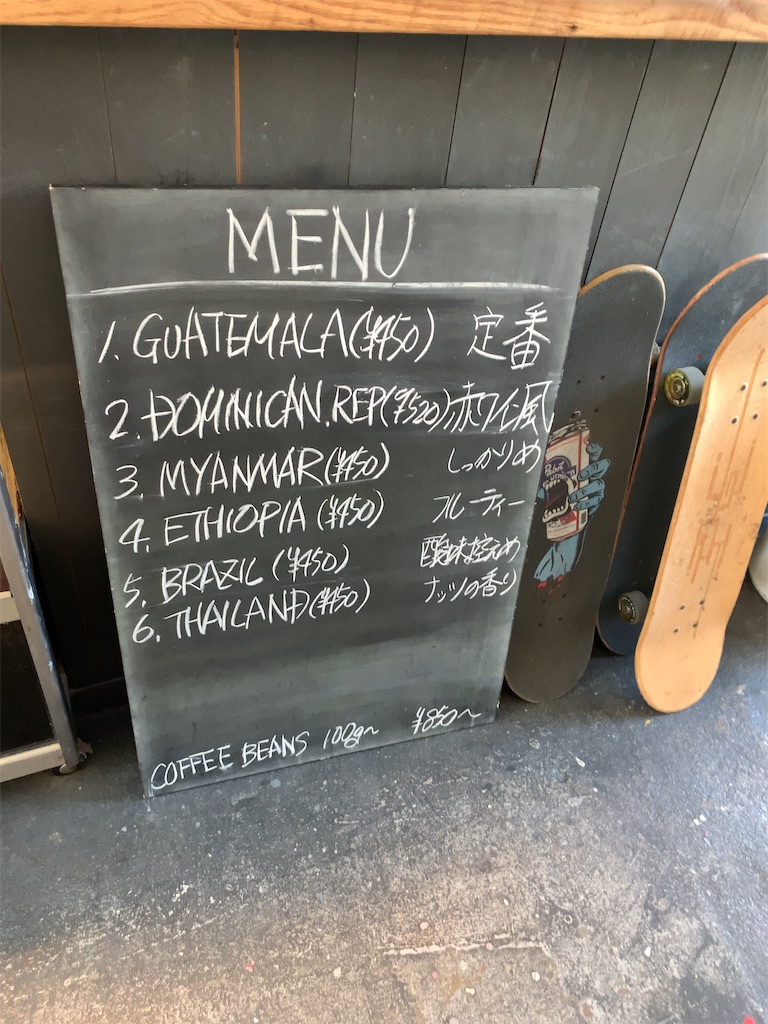 MENU
1. GUATEMALA (¥450) 定番
2. DOMINICAN. REP (¥520) 赤ワイン風
3. MYANMAR (¥450) しっかりめ
4. ETHIOPIA (¥450) フルーティー
5. BRAZIL (¥450) 酸味控えめ
6. THAILAND (¥450) ナッツの香り
COFFEE BEANS 100g~ ¥850~
Pabst